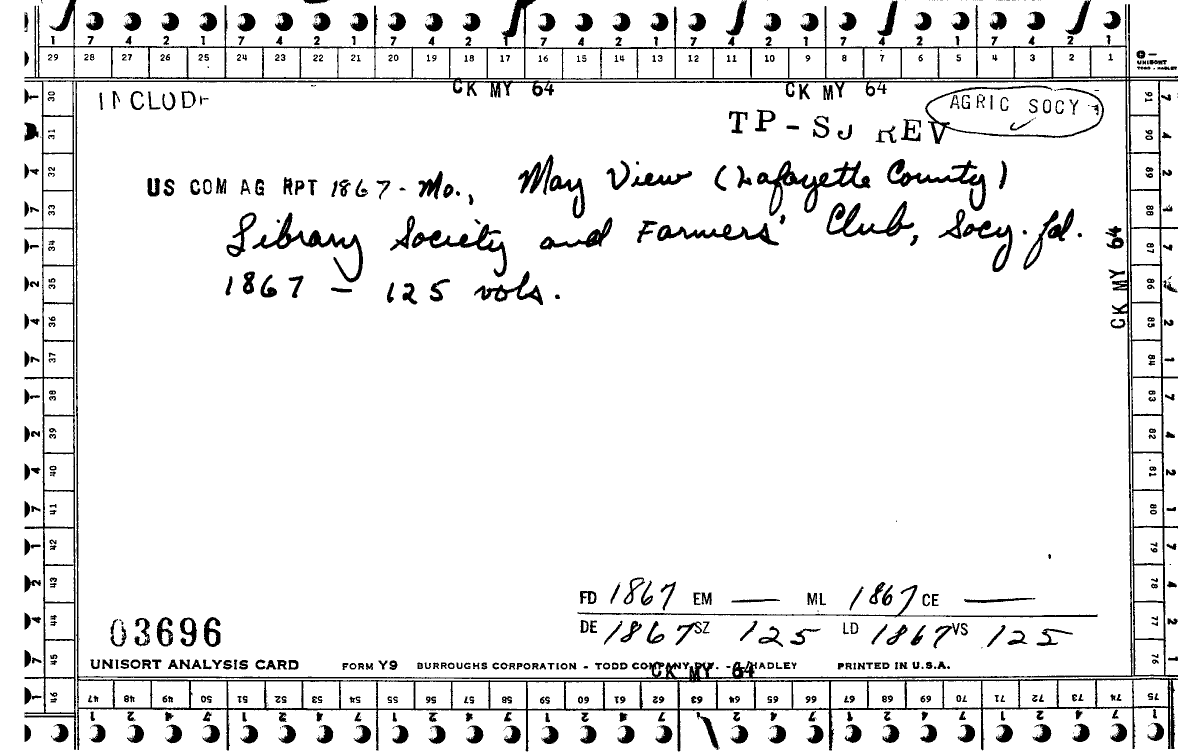 7 4 2 1 7 4 2 1 7 4 2 1 7 4 2 1 7 4 2 1 7 4 2 1 7 4 2 1
29 28 27 26 25 24 23 22 21 20 19 18 17 16 15 14 13 12 11 10 9 8 7 6 5 4 3 2 1
UNISORT
INCLUDE
CK MY 64
CK MY 64
AGRIC SOCY
TP-SJ REV
US COM AG RPT 1867- Mo., May View (Lafayette County)
Library Society and Farmers' Club, Socy. fd.
1867 — 125 vols.
CK MY 64
30 31 32 33 34 35 36 37 38 39 40 41 42 43 44 45 46
91 90 89 88 87 86 85 84 83 82 81 80 79 78 77 76
FD 1867 EM — ML 1867 CE —
DE 1867 SZ 125 LD 1867 VS 125
03696
UNISORT ANALYSIS CARD FORM Y9 BURROUGHS CORPORATION - TODD COMPANY DIV. - HADLEY PRINTED IN U.S.A.
CK MY 64
47 48 49 50 51 52 53 54 55 56 57 58 59 60 61 62 63 64 65 66 67 68 69 70 71 72 73 74 75